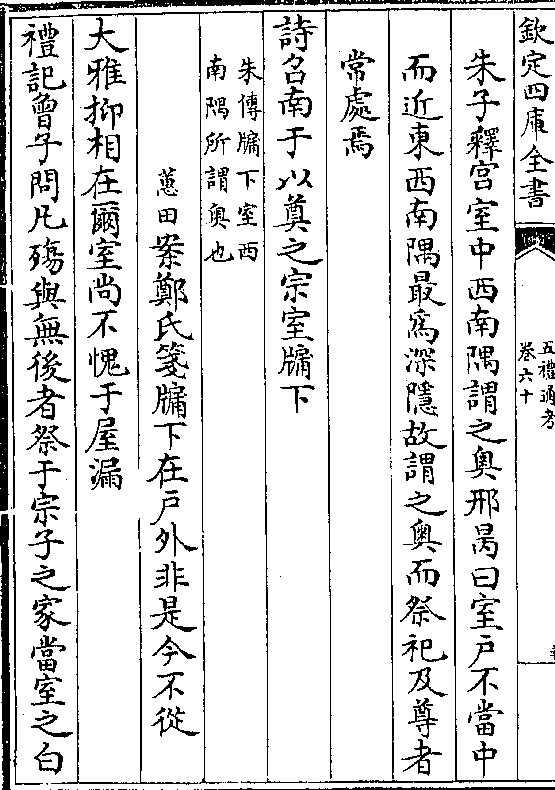 欽定四庫全書
五禮通考
卷六十
朱子釋宫室中西南隅謂之奥邢昺曰室戸不當中
而近東西南隅最爲深隱故謂之奥而祭祀及尊者
常處焉
詩召南于以奠之宗室牖下
朱傳牖下室西
南隅所謂奥也
蕙田案鄭氏箋牖下在戸外非是今不從
大雅抑相在爾室尚不愧于屋漏
禮記曾子問凡殤與無後者祭于宗子之家當室之白